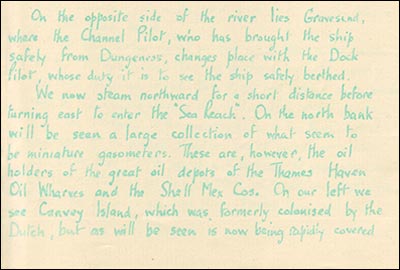 On the opposite side of the river lies Gravesend,
where the Channel Pilot, who has brought the ship
safely from Dungeness, changes place with the Dock
Pilot, whose duty it is to see the ship safely berthed.
We now steam northward for a short distance before
turning east to enter the "Sea Reach". On the north bank
will be seen a large collection of what seem to
be miniature gasometers. These are, however, the oil
holders of the great oil depots of the Thames Haven
Oil Wharves and the Shell Mex Cos. On our left we
see Canvey Island, which was formerly colonised by the
Dutch, but as will be seen is now being rapidly covered